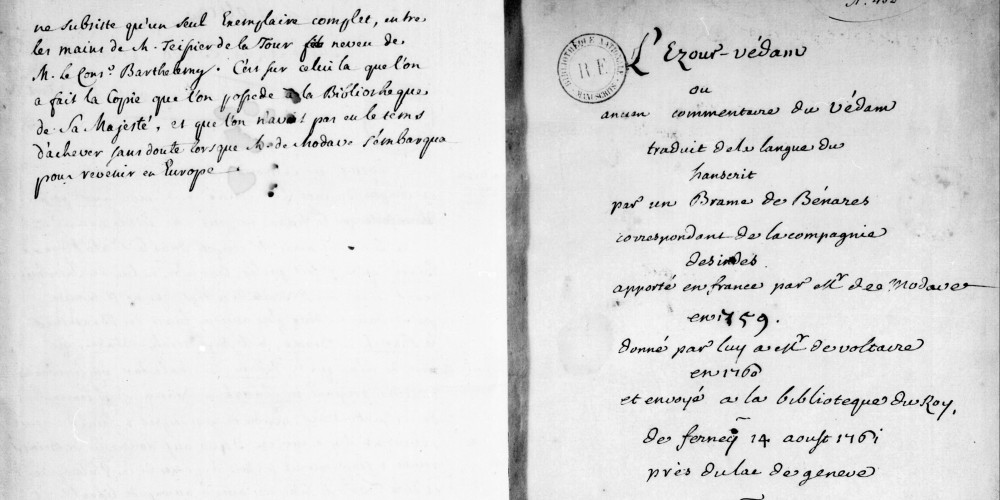 ne subsiste qu'un seul Exemplaire complet, entre
les mains de M. Teissier de la Tour neveu de
M. le Cons.r Barthelemy. C'est sur celui la que l'on
a fait la Copie que l'on possede a la Bibliotheque
de Sa Majesté, et que l'on n'avoit pas eu le tems
d'achever sans doute lorsque M. de Modave s'embarqua
pour revenir en Europe
BIBLIOTHÈQUE NATIONALE
R F
MANUSCRITS
L'Ezour-védam
ou
ancien commentaire du védam
traduit de la langue du
hanscrit
par un Brame de Bénares
correspondant de la compagnie
des indes
apporté en france par Mr. de Modave
en 1759.
donné par luy a Mr. de voltaire
en 1760
et envoyé a la biblioteque du Roy,
de ferney 14 aoust 1761
près du lac de geneve